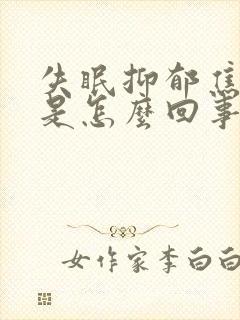 失眠抑郁焦
是怎麼回事
女作家李白白